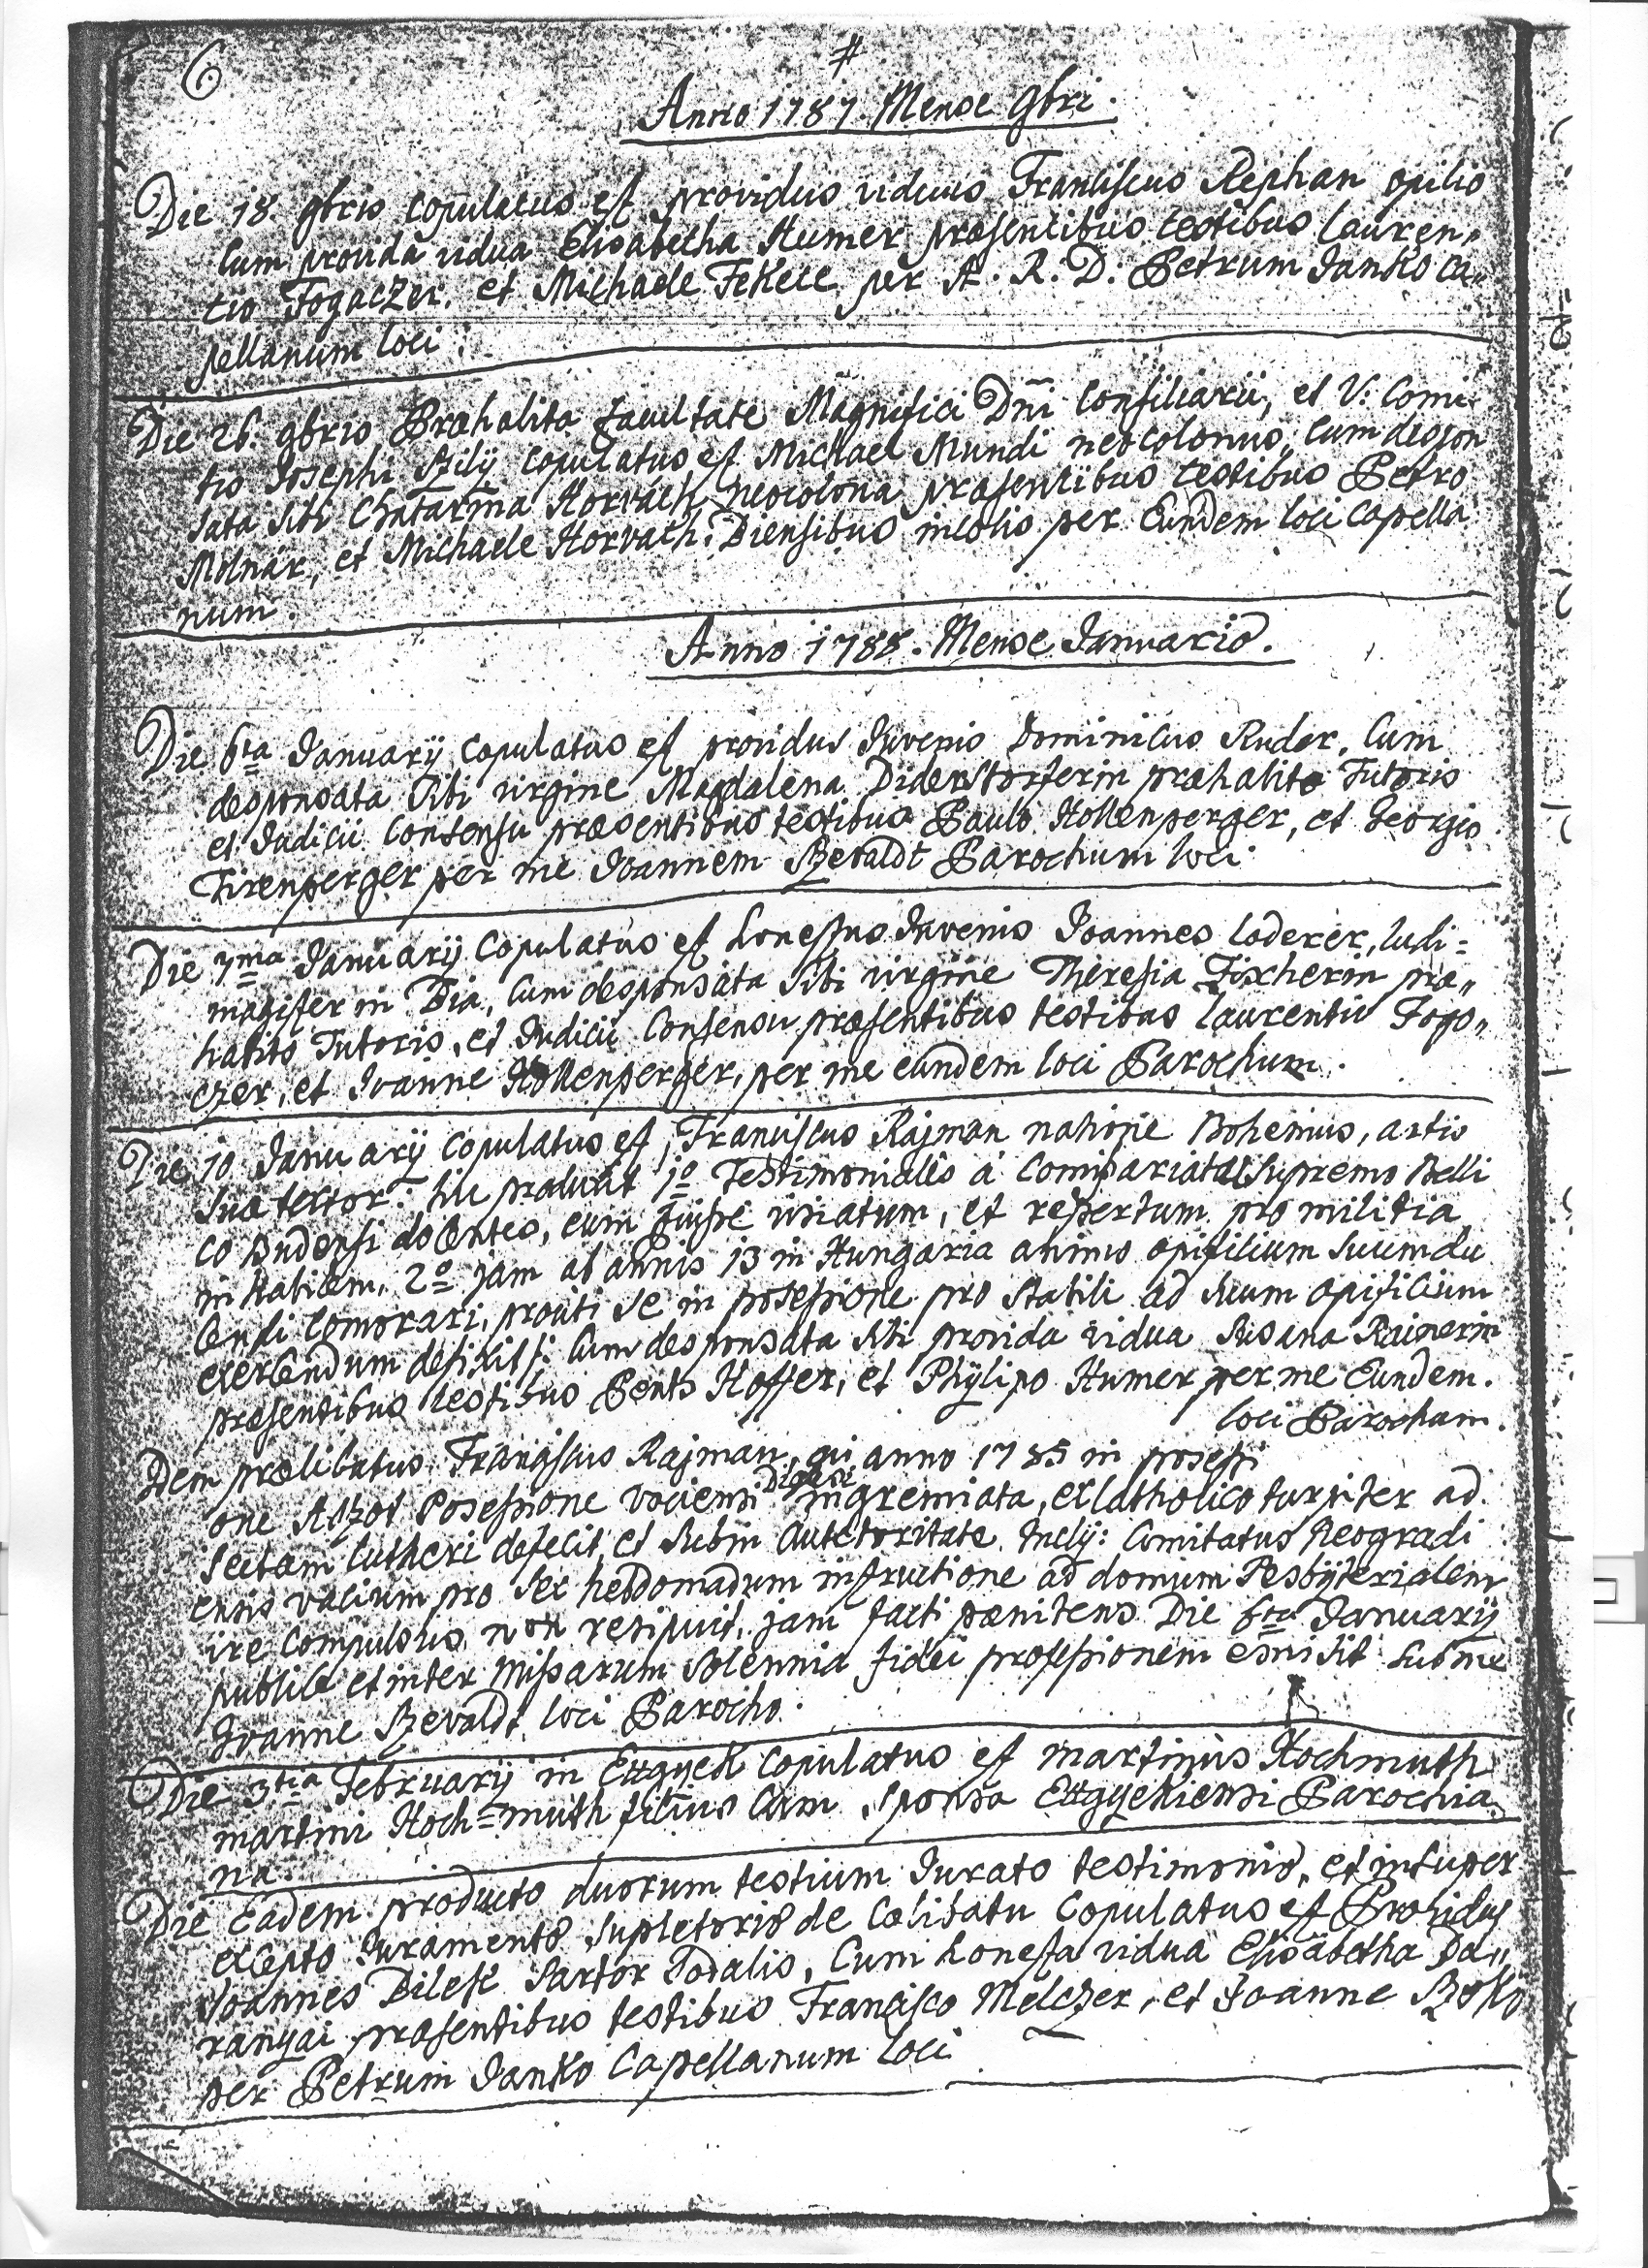 6
#
Anno 1787. Mense 9bri.
Die 18. 9bris copulatus est providus viduus Franciscus Rephan opilio
Cum provida vidua Elisabetha Humer præsentibus testibus Lauren„
tio Fogaczer, et Michaele Fekete per A. R. D. Petrum Janko Ca„
pellanum loci.
Die 26. 9bris Præhabita facultate Magnifici Dñi Consiliarii, et V. Comi
tis Josephi Szily copulatus est Michael Mundi neocolonus, cum despon
sata sibi Chatarina Horvách neocolona præsentibus testibus Petro
Molnár, et Michaele Horvach. Diensibus incolis per Eundem loci Capella
num.
Anno 1788. Mense Januario.
Die 6ta Januarij copulatus est providus Juvenis Dominicus Ruder, Cum
desponsata Sibi virgine Magdalena Diderstorferin præhabito Tutoris
et Judicii Consensu præsentibus testibus Paulo Hollenperger, et Georgio
Firenperger per me Joannem Szevaldt Parochum loci
Die 7ma Januarij Copulatus est honestus Juvenis Joannes Loderer, ludi=
magister in Dia, Cum desponsata Sibi virgine Theresia Fixherin præ„
habito Tutoris, et Judicii Consensu præsentibus testibus Laurentio Fogo„
czer, et Joanne Hollenperger, per me eundem loci Parochum.
Die 10 Januarij copulatus est, Franciscus Rajman natione Bohemus, artis
suæ textor: hic produxit 1o Testimoniales á Comissariatu Supremo Belli
co Budensi docentes, eum fuisse visiatum, et repertum pro militia
in habilem, 2o jam ab annis 13 in Hungaria animo opificium suum du
cendi Comorari, prouti se in possessione pro stabili ad suum opificium
exercendum defixit: Cum desponsata sibi provida vidua Susana Rainerin
præsentibus testibus Hoffer, et Phylipo Humer per me Eundem.
loci Parocham.
Idem prælibatus Franciscus Rajman, qui anno 1785 in possessi
one Atzot Possessione Vaciensi Diœcesi ingremiata, ex Catholico turpiter ad
sectam Lutheri defecit, et Subin Auctoritate Incly: Comitatus Neogradi
ensis Vacium pro sex hebdomadum instructione ad domum Pesbyterialem
ire compulsus, non resipuit, jam facti pænitens Die 6ta Januarij
publice et inter Missarum Solennia fidei professionem emisit sub me
Joanne Szevaldt loci Parocho.
Die 3tia Februarij in Ettgyek copulatus est martinus Hochmuth
martini Hoch=muth filius Cum sponsa Ettgyekiensi Parochia
na.
Die Eadem producto duorum testium Jurato testimonio, et insuper
excepto Juramento Supletorio de Cælibatu Copulatus est Providus
Joannes Bilek Sartor Sodalis, Cum honesta vidua Elisabetha Ba„
ranyai præsentibus testibus Francisco Melczer, et Joanne Szoko
per Petrum Janko Capellanum loci